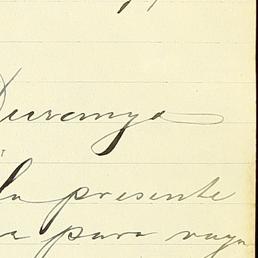 Duranya
la presente
a para vaya